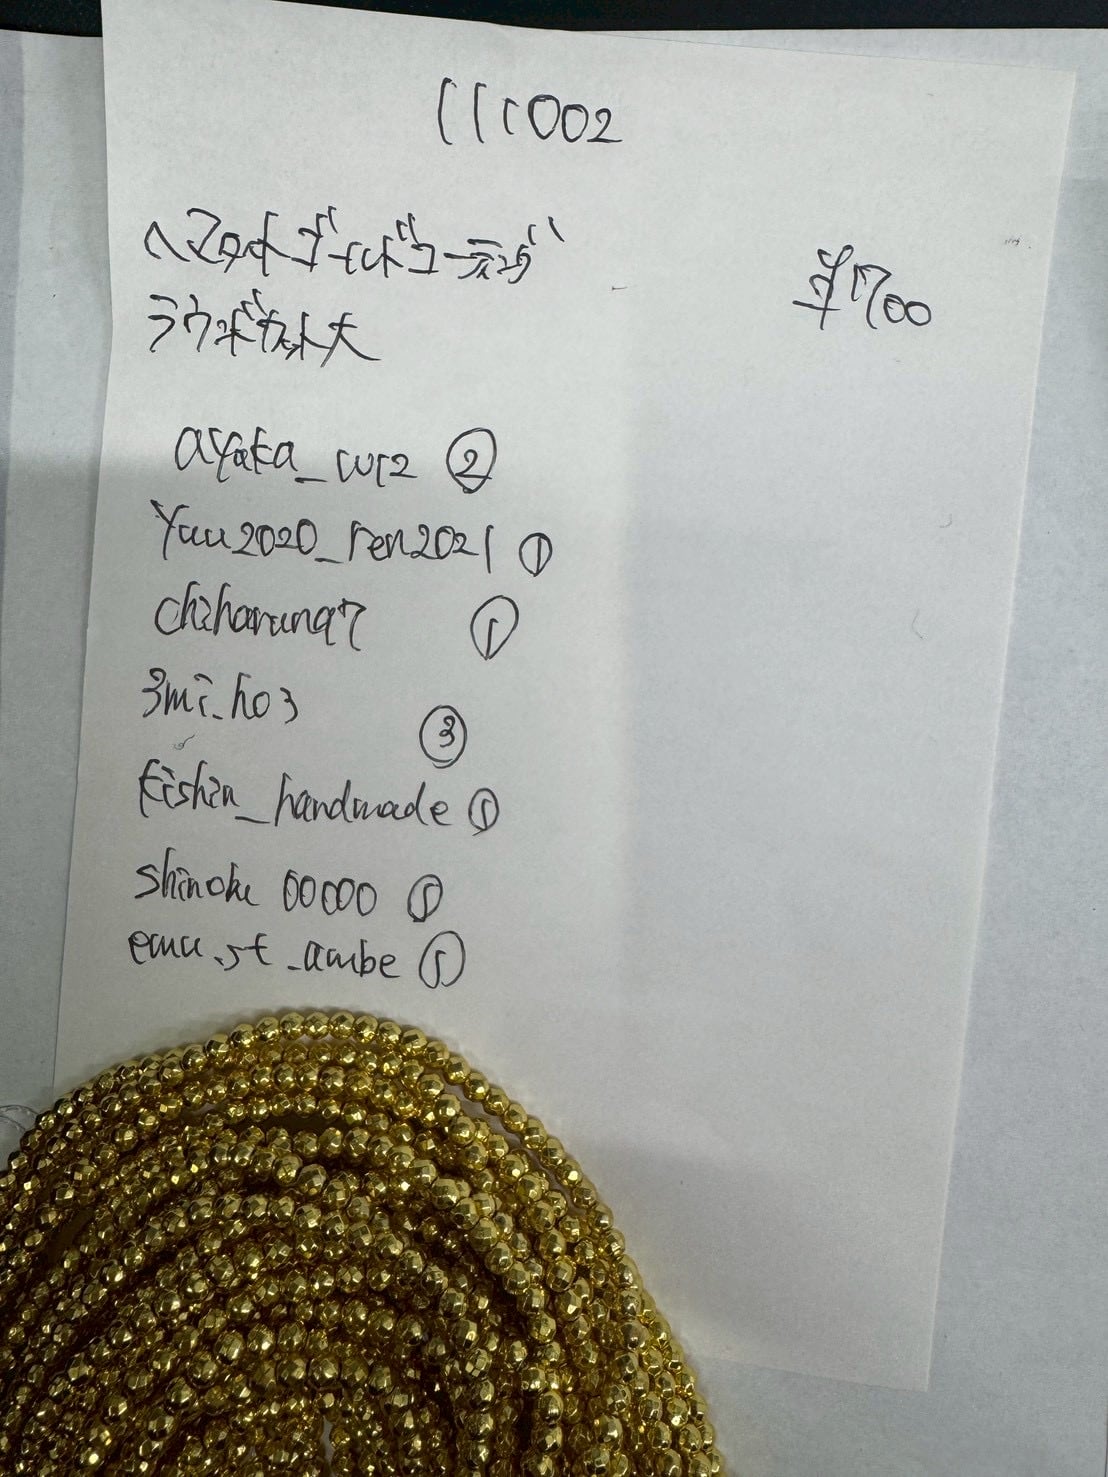 111002
ヘマタイトゴールドコーティング
ラウンドカット大
¥1700
ayaka_wr2 ②
yuu2020_ren2021 ①
chiharuna7 ①
3mi_ho3 ③
kishin_handmade ①
shinoke00000 ①
emu.st_ambe ①